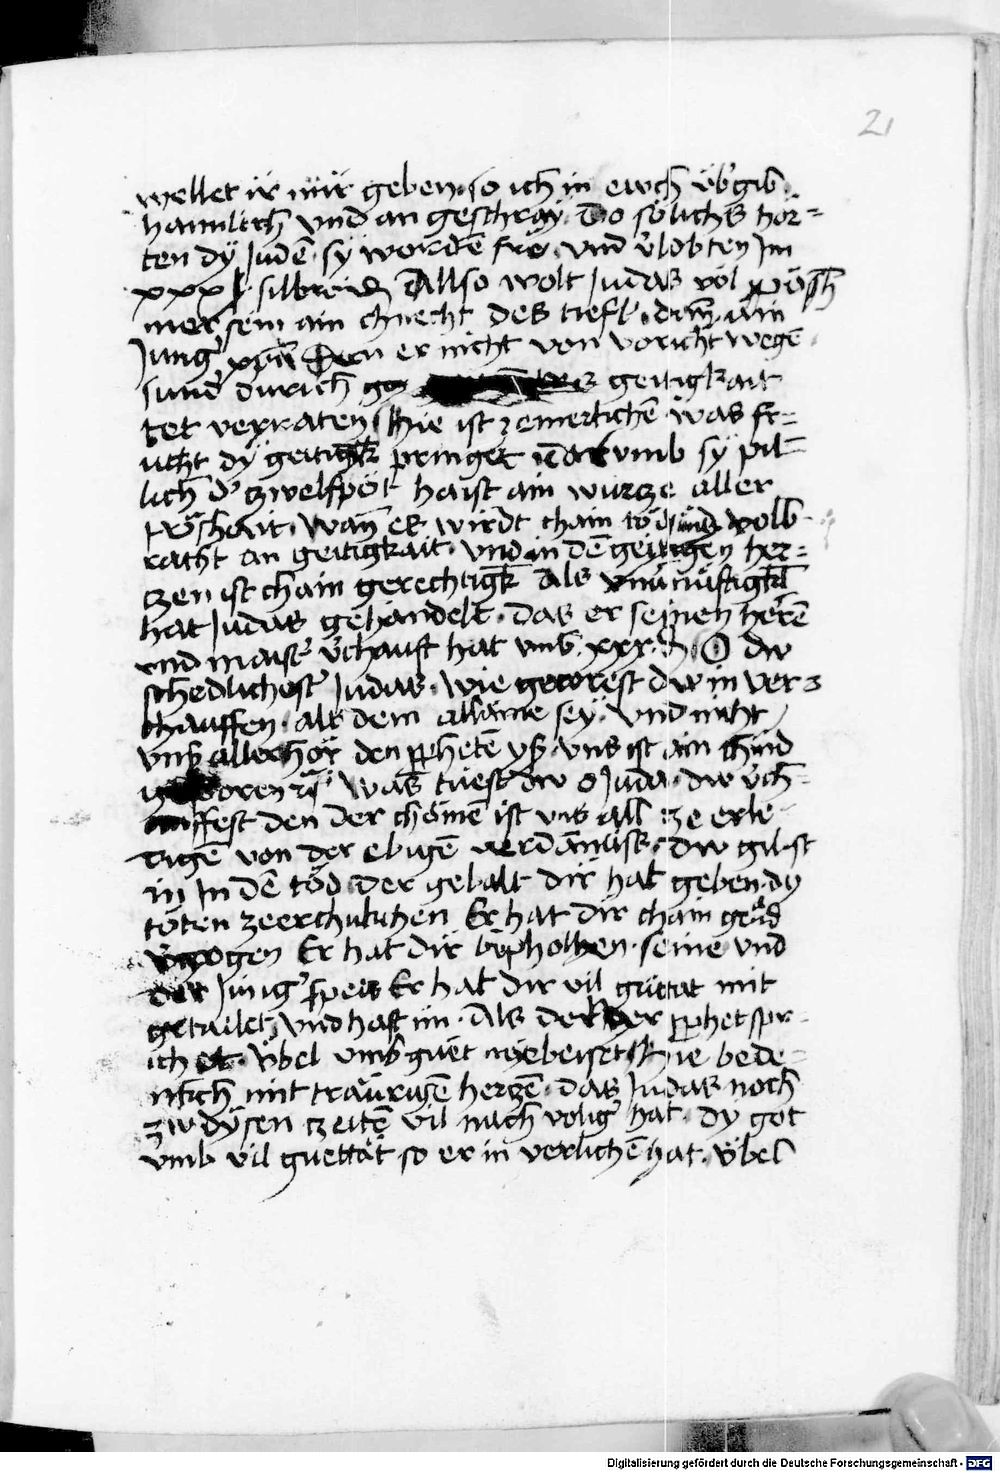 21
wellet ir mir geben so ich in ewch vb'gib
haimlich vnd an geschray. Do sölichs hör=
ten dÿ Judē sÿ wordē fro vnd v'lobten Im
xxx silbreiñ Allso wolt Judas vol pösh
mer sein ain chnecht des tiefl' dañ ain
Jung' xpī Den er nicht von voricht wegē
sund' durich geitigkait
tet verraten Hie ist ze merkchē was fr=
ucht dÿ geitigk pringet vmb sÿ pil=
lich d' zwelfpöt haist ain wurtze aller
pösheit. Wañ es wirdt chain tödsünd volb
racht an geitigkait. vnd in dē geitigen her=
tzen ist chain gerechtigk Als
hat Judas gehandelt. das er seinen herē
vnd maist' v'chauft hat vmb xxx O dw
schedlichost' Judas. wie getorest dw in ver=
chauffen. als dem allaine seÿ. vnd nicht
den pphetē vns ist ain chind
geporen Was tuest dw o Juda. dw v'ch=
auffest den der chömē ist vns all ze erle
digē von der ebigē verdāmnüss dw gibst
in In dē töd der gebalt dir hat geben dÿ
töten ze erchukchen Er hat dir chain genad
v'tzogen Er hat dir enpholhen seine vnd
der Jung' speis Er hat dir vil güttat mit
getailet vnd hast im. Als der pphet spr=
ichet. Vbel vmb guet Hie bede=
nkch mit traürigē hertzē. das Judas noch
zw dÿsen zeitē vil nach volig' hat. dÿ got
vmb vil guettät so er in verlichē hat. vbel
Digitalisierung gefördert durch die Deutsche Forschungsgemeinschaft - DFG